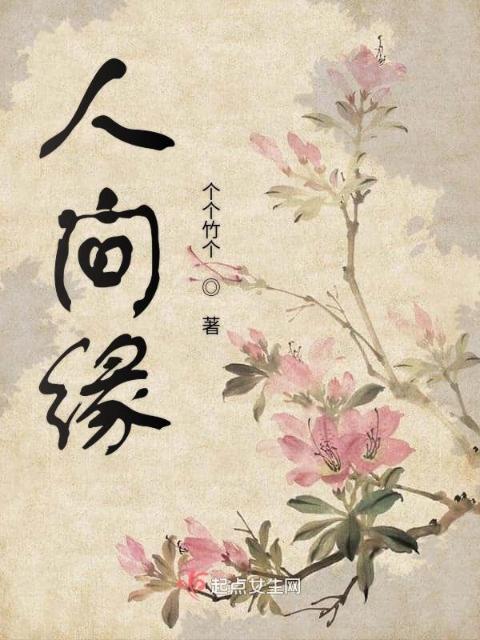 人间缘
个个竹个 ◎ 著
起点女生网